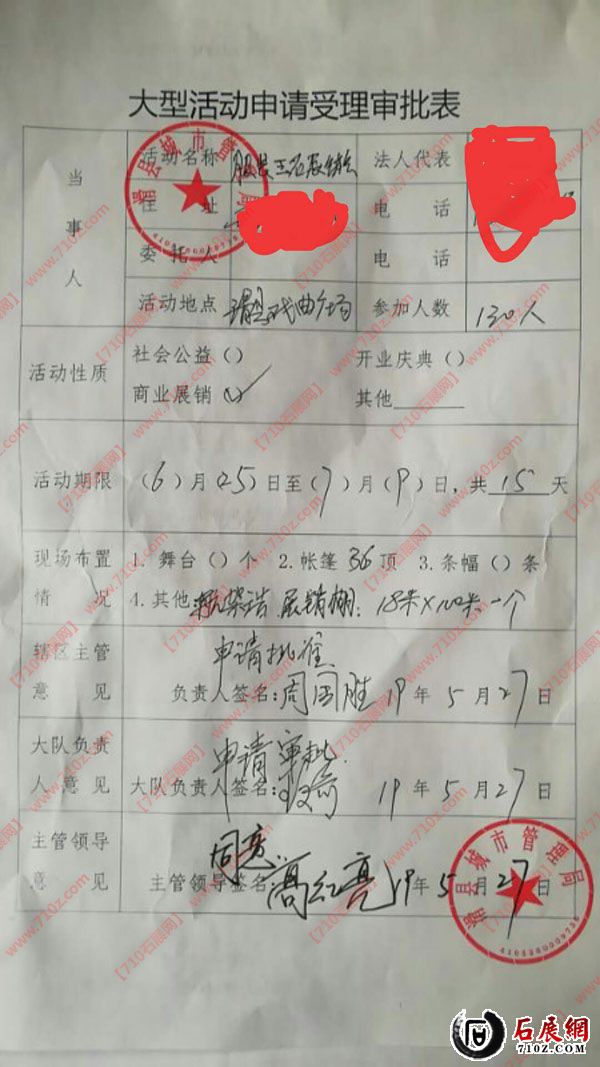 大型活动申请受理审批表
当事人
活动名称
法人代表
住 址
电 话
委托人
电 话
活动地点 戏曲广场
参加人数 130人
活动性质
社会公益() 开业庆典()
商业展销(✓) 其他
活动期限 (6)月(25)日至(7)月(9)日,共15天
现场布置情况
1. 舞台()个 2.帐篷36顶 3.条幅()条
4.其他: 展销棚:18米×100米一个
辖区主管意见
申请批准
负责人签名:周国胜 19年5月27日
大队负责人意见
申请审批
大队负责人签名: 19年5月27日
主管领导意见
同意
主管领导签名:高红亮 19年5月27日
县城市管理局
4104250009736
【710石展网】www.710z.com
石展網
710Z.COM